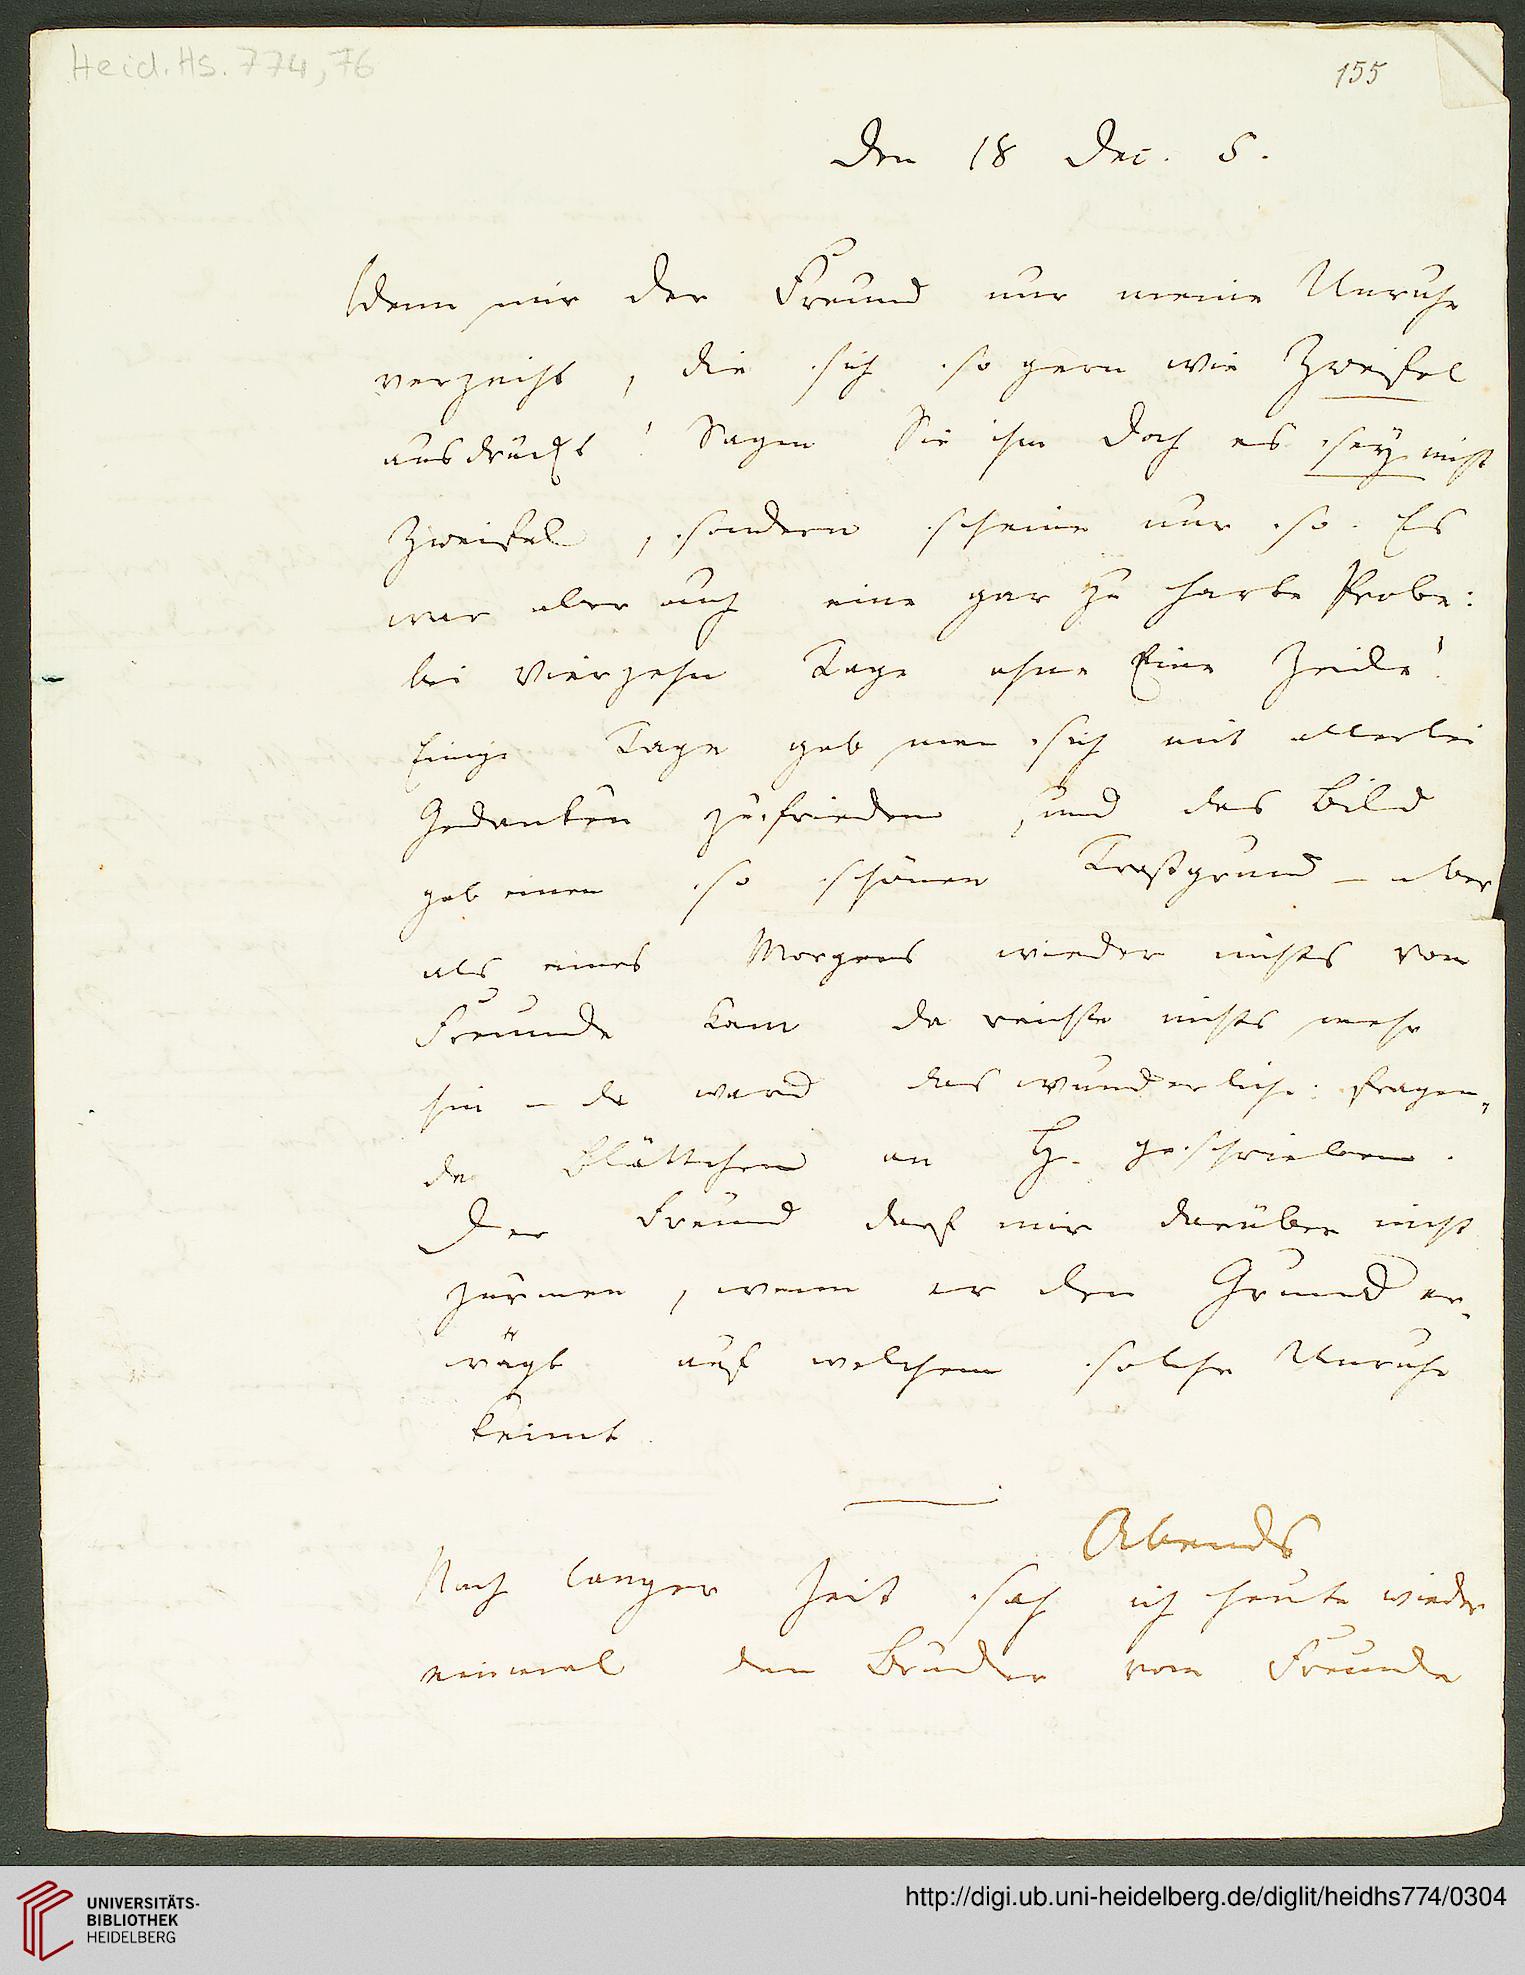 Heid. Hs. 774, 76
155
Den 18 Dec. 5.
Wenn mir der Freund nur meine Unruhe
verzeiht, die sich so gern wie Zweifel
ausdrückt! Sagen Sie ihm doch es sey nicht
Zweifel, sondern scheine nur so. Es
war aber auch eine gar zu harte Probe:
bei vierzehn Tage ohne Eine Zeile!
Einige Tage gab man sich mit allerlei
Gedanken zufrieden, und das Bild
gab einen so schönen Trostgrund – aber
als eines Morgens wieder nichts vom
Freunde kam da reichte nichts mehr
hin – da ward das wunderliche: fragen-
de Blättchen an H. geschrieben.
Der Freund darf mir darüber nicht
zürnen, wenn er den Grund er-
wägt auf welchem solche Unruhe
keimt.
Abends
Nach langer Zeit sah ich heute wieder
einmal den Bruder vom Freunde
UNIVERSITÄTS-
BIBLIOTHEK
HEIDELBERG
http://digi.ub.uni-heidelberg.de/diglit/heidhs774/0304